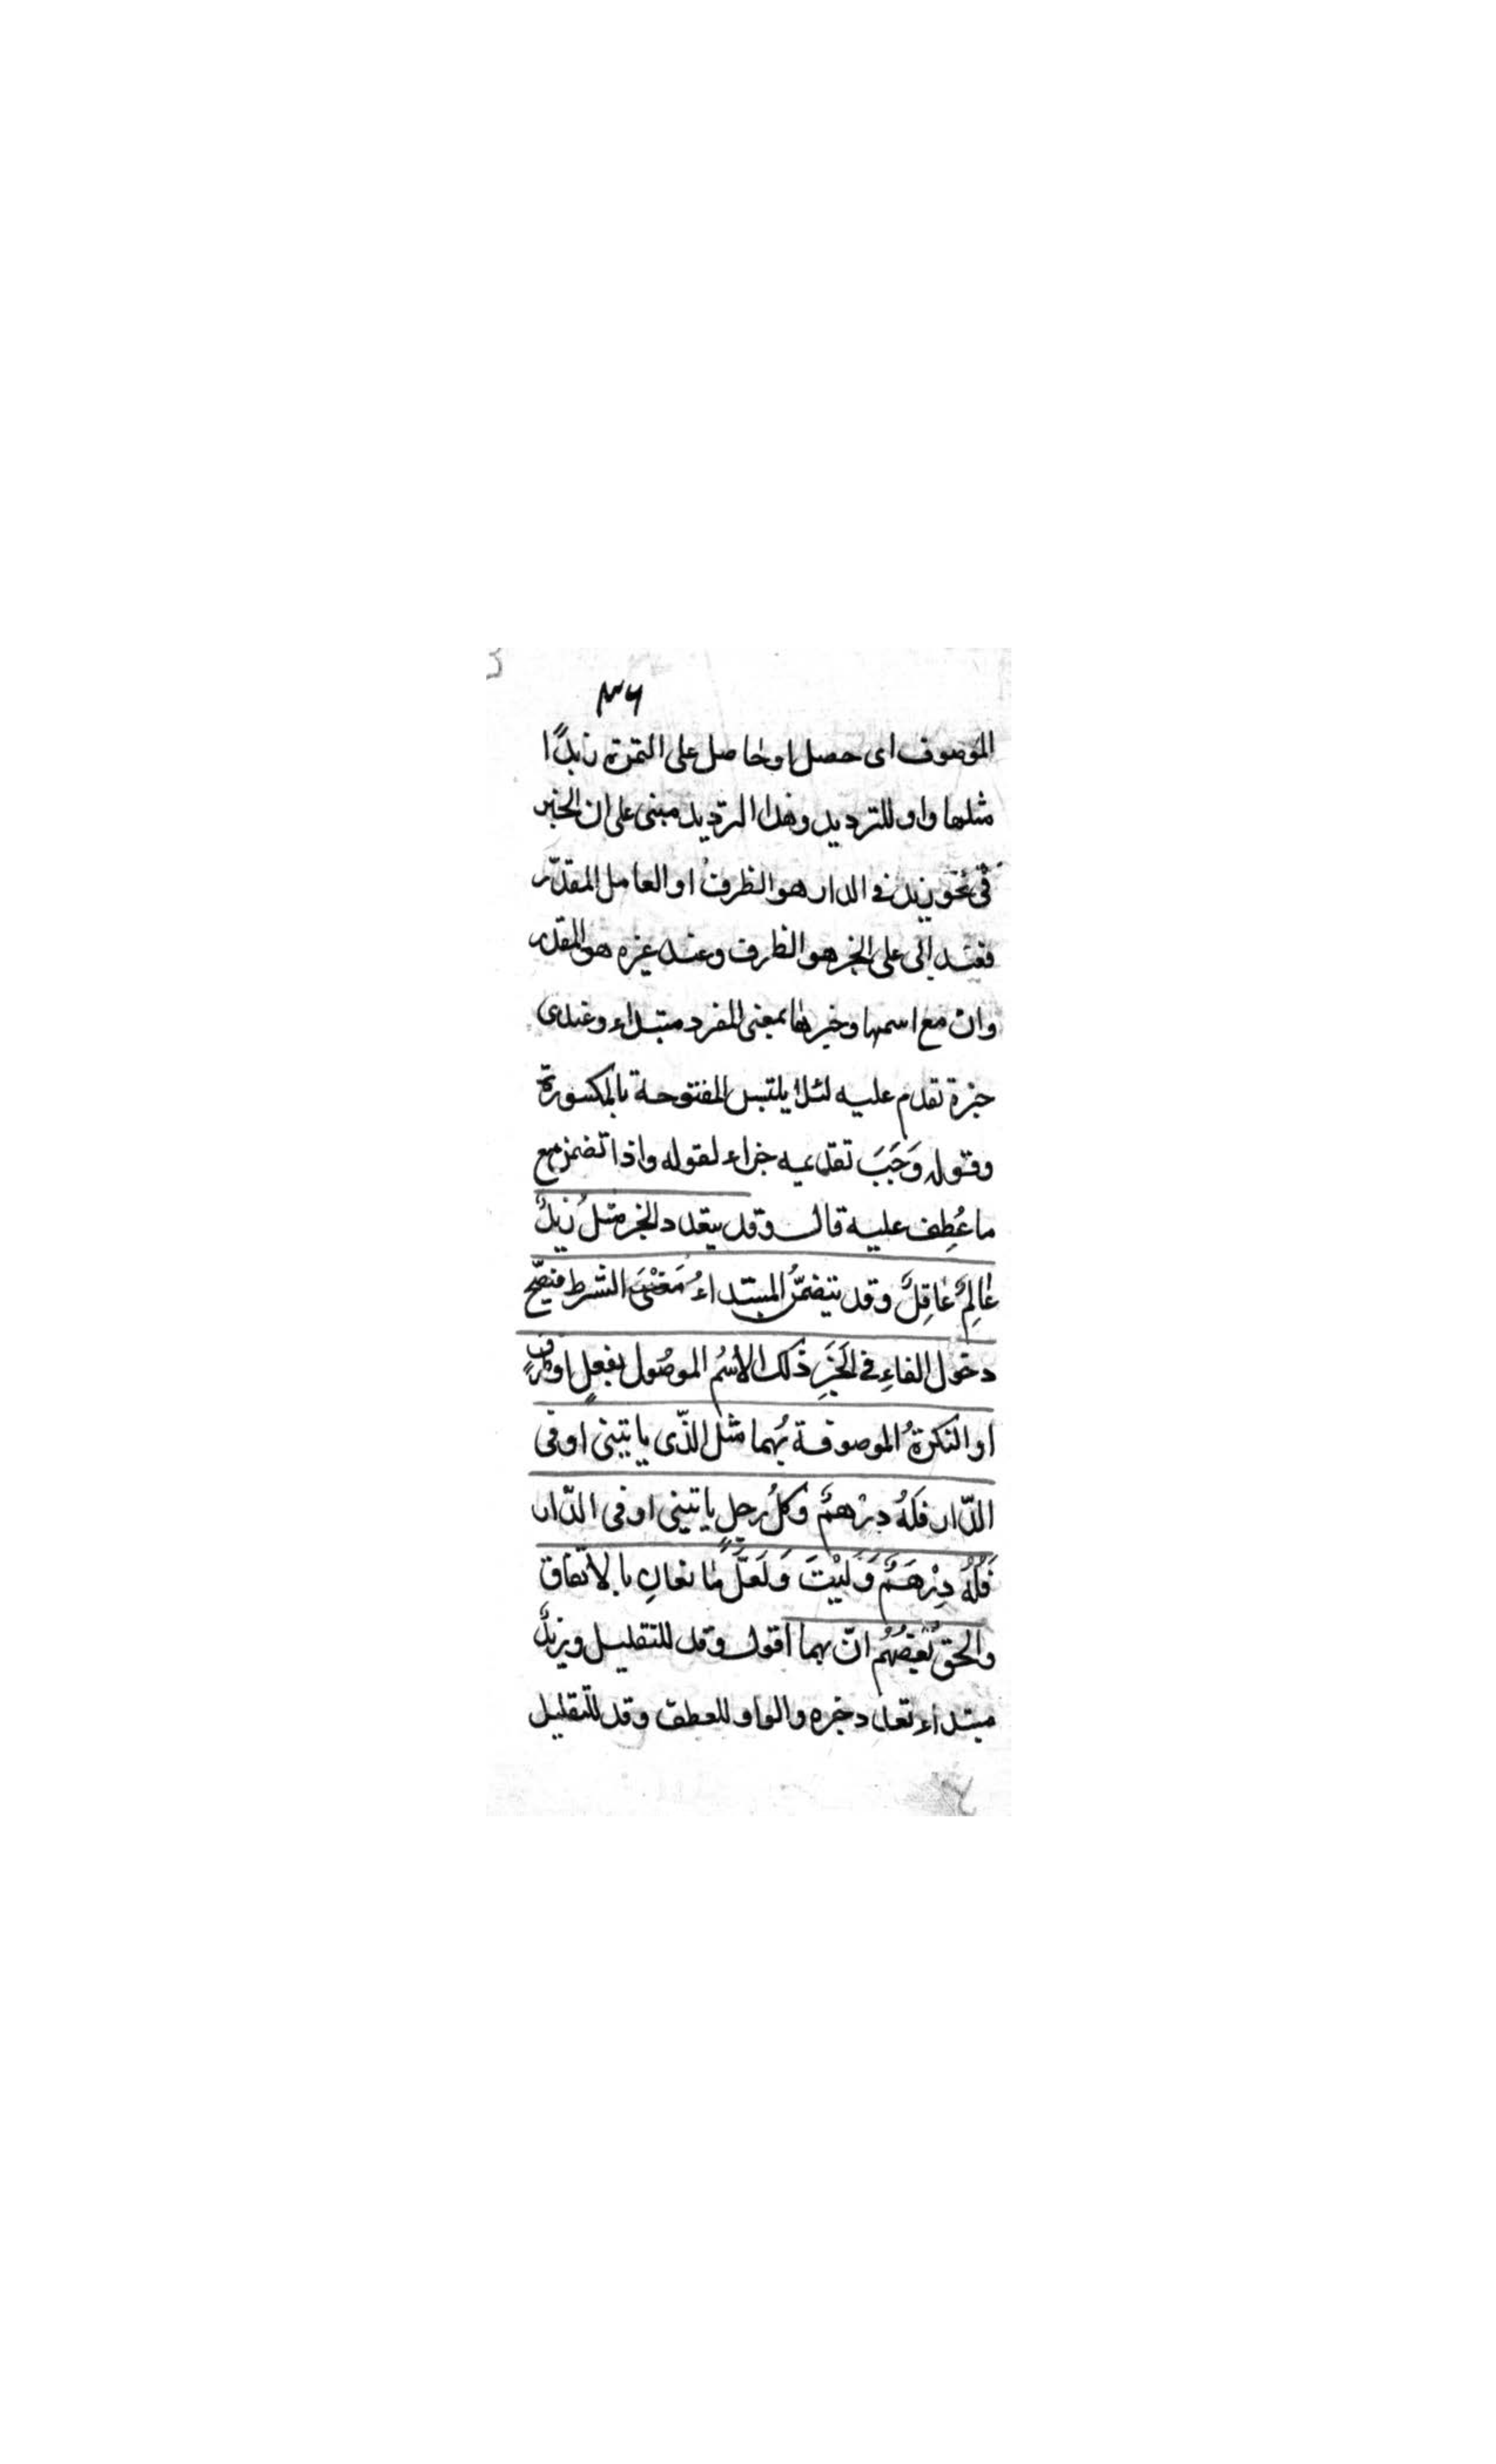 ٣٦
الموصوف اى حصل او حاصل على التمرة زبدًا
مثلها واو للترديد وهذا الترديد مبنى على ان الخبر
فى نحو زيد فى الدار هو الظرف او العامل المقدّر
فعند ابى على الخبر هو الظرف وعند غيره هو المقدر
وان مع اسمها وخبرها بمعنى المفرد مبتداء وعندى
خبره تقدم عليه لئلا يلتبس المفتوحة بالمكسورة
وقوله وَجَبَ تقديمه جزاء لقوله واذا تضمن مع
ما عُطِف عليه قال وقد يتعدد الخبر مثلُ زيدٌ
عٰالِمٌ عٰاقِلٌ وقد يتضمّنُ المبتداءُ مَعْنَىَ الشرط فيصّح
دخول الفاءِ فى الخَبَرِ ذلك الاسُم الموصُول بفعلٍ او ظرفٍ
او النكرةُ الموصوفة بهُما مثل الذّى ياتينى او فى
الدّار فَلَهُ دِرْهمٌ وكلُ رجلٍ ياتينى او فى الدّار
فَلَهُ دِرْهَمٌ وَلَيْتَ وَلَعَلَّ مٰانعانِ بالاتّفاق
والحقَ بَعضُهُم انّ بهما اقول وقد للتقليل وزيدٌ
مبتداء تعدد خبره والواو للعطف وقد للتقليل